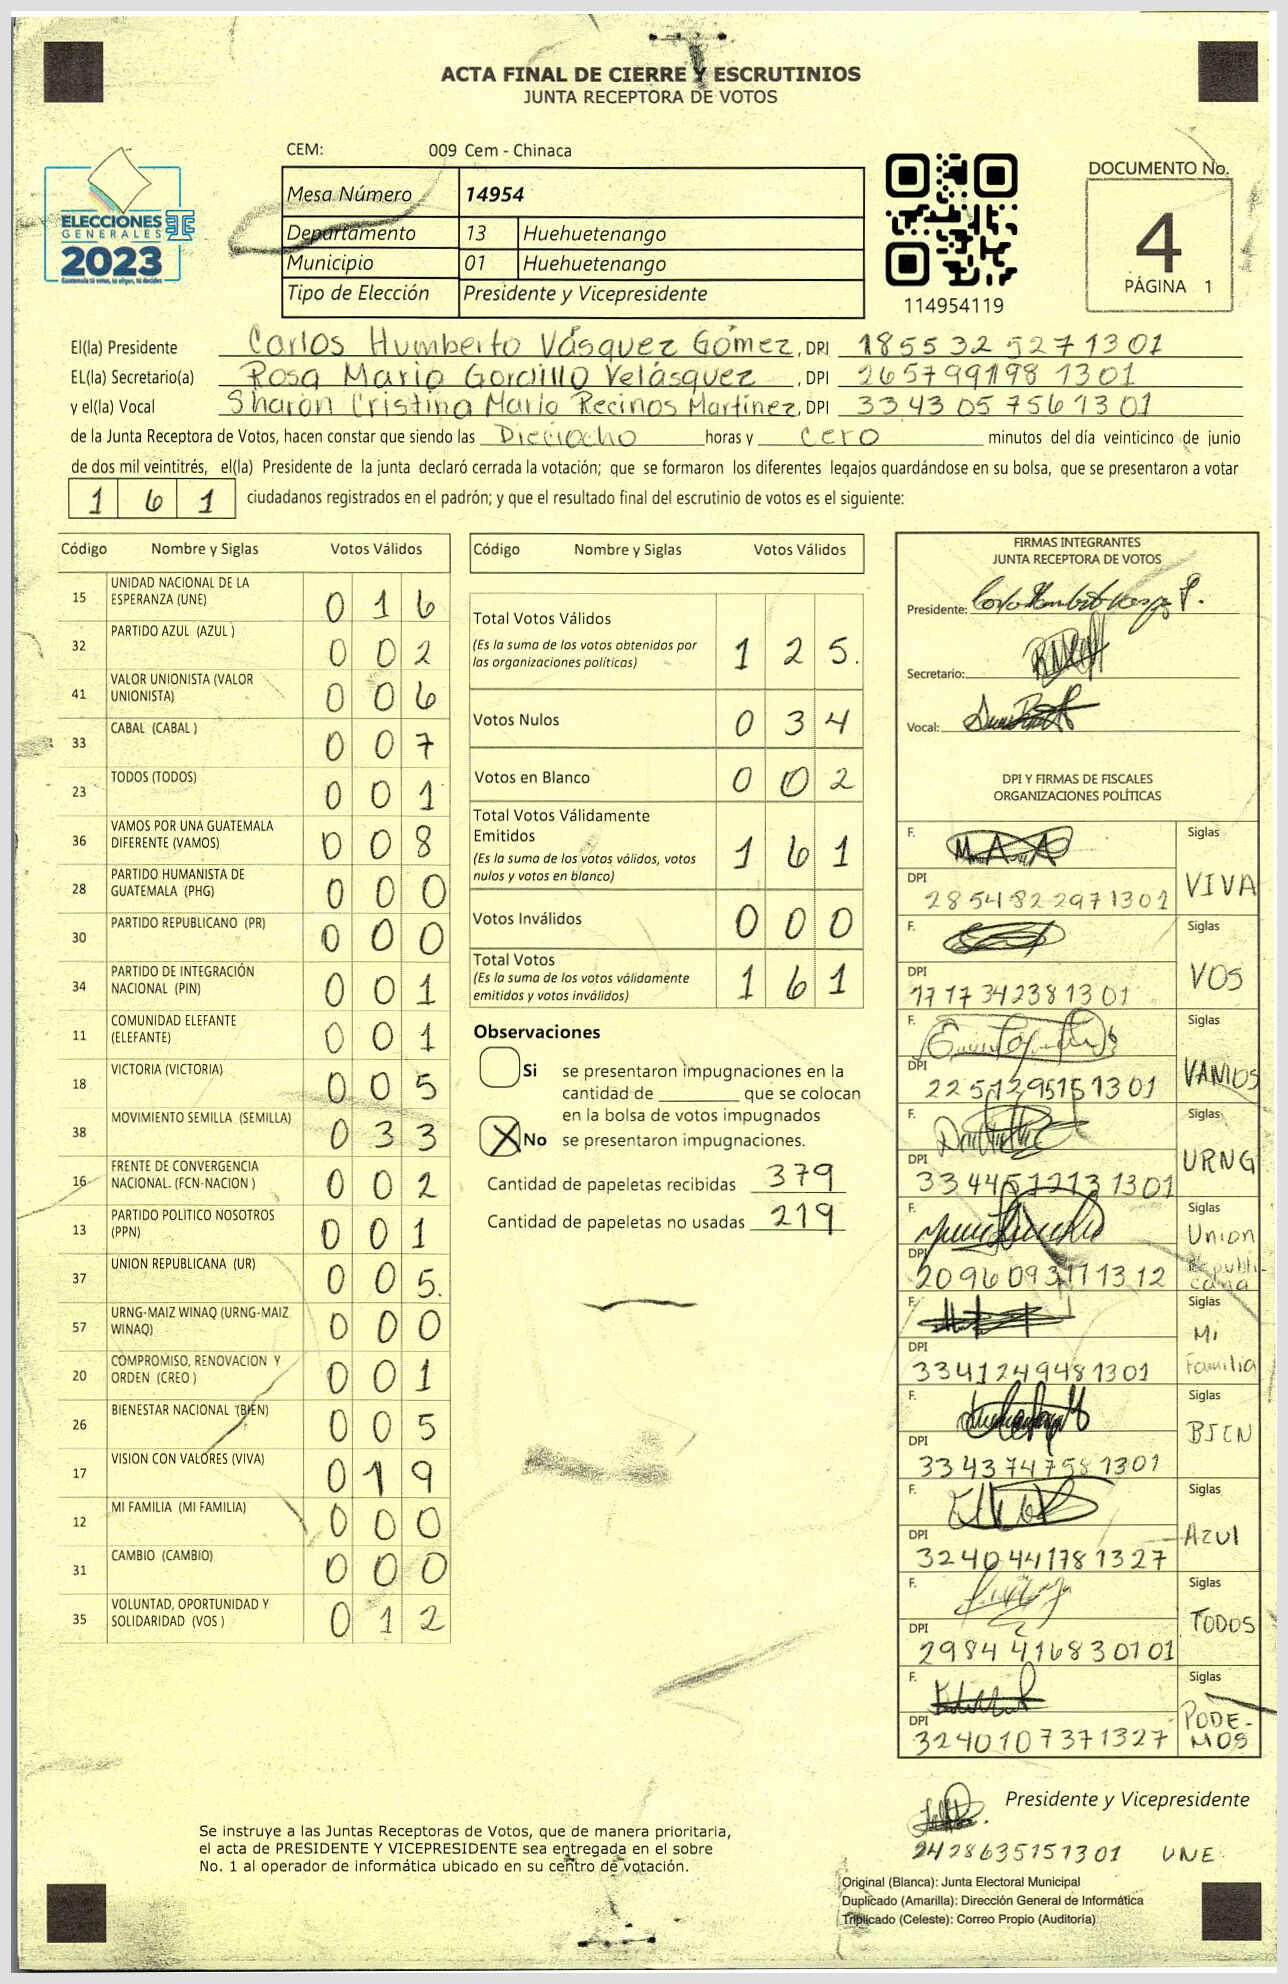 ACTA FINAL DE CIERRE Y ESCRUTINIOS
JUNTA RECEPTORA DE VOTOS
CEM: 009 Cem - Chinaca
ELECCIONES
GENERALES
2023
Guatemala tú votas, tú eliges, tú decides
Mesa Número 14954
Departamento 13 Huehuetenango
Municipio 01 Huehuetenango
Tipo de Elección Presidente y Vicepresidente
114954119
DOCUMENTO No.
4
PÁGINA 1
El(la) Presidente Carlos Humberto Vásquez Gómez, DPI 1855325271301
EL(la) Secretario(a) Rosa Maria Gordillo Velásquez, DPI 2657991981301
y el(la) Vocal Sharon Cristina Mario Recinos Martínez, DPI 3343057561301
de la Junta Receptora de Votos, hacen constar que siendo las Dieciocho horas y cero minutos del día veinticinco de junio
de dos mil veintitrés, el(la) Presidente de la junta declaró cerrada la votación; que se formaron los diferentes legajos guardándose en su bolsa, que se presentaron a votar
1 6 1 ciudadanos registrados en el padrón; y que el resultado final del escrutinio de votos es el siguiente:
Código Nombre y Siglas Votos Válidos
15 UNIDAD NACIONAL DE LA ESPERANZA (UNE) 0 1 6
32 PARTIDO AZUL (AZUL ) 0 0 2
41 VALOR UNIONISTA (VALOR UNIONISTA) 0 0 6
33 CABAL (CABAL ) 0 0 7
23 TODOS (TODOS) 0 0 1
36 VAMOS POR UNA GUATEMALA DIFERENTE (VAMOS) 0 0 8
28 PARTIDO HUMANISTA DE GUATEMALA (PHG) 0 0 0
30 PARTIDO REPUBLICANO (PR) 0 0 0
34 PARTIDO DE INTEGRACIÓN NACIONAL (PIN) 0 0 1
11 COMUNIDAD ELEFANTE (ELEFANTE) 0 0 1
18 VICTORIA (VICTORIA) 0 0 5
38 MOVIMIENTO SEMILLA (SEMILLA) 0 3 3
16 FRENTE DE CONVERGENCIA NACIONAL. (FCN-NACION ) 0 0 2
13 PARTIDO POLITICO NOSOTROS (PPN) 0 0 1
37 UNION REPUBLICANA (UR) 0 0 5.
57 URNG-MAIZ WINAQ (URNG-MAIZ WINAQ) 0 0 0
20 COMPROMISO, RENOVACION Y ORDEN (CREO ) 0 0 1
26 BIENESTAR NACIONAL (BIEN) 0 0 5
17 VISION CON VALORES (VIVA) 0 1 9
12 MI FAMILIA (MI FAMILIA) 0 0 0
31 CAMBIO (CAMBIO) 0 0 0
35 VOLUNTAD, OPORTUNIDAD Y SOLIDARIDAD (VOS ) 0 1 2
Código Nombre y Siglas Votos Válidos
Total Votos Válidos 1 2 5.
(Es la suma de los votos obtenidos por
las organizaciones políticas)
Votos Nulos 0 3 4
Votos en Blanco 0 0 2
Total Votos Válidamente
Emitidos 1 6 1
(Es la suma de los votos válidos, votos
nulos y votos en blanco)
Votos Inválidos 0 0 0
Total Votos 1 6 1
(Es la suma de los votos válidamente
emitidos y votos inválidos)
Observaciones
Si se presentaron impugnaciones en la
cantidad de ________ que se colocan
en la bolsa de votos impugnados
X No se presentaron impugnaciones.
Cantidad de papeletas recibidas 379
Cantidad de papeletas no usadas 219
FIRMAS INTEGRANTES
JUNTA RECEPTORA DE VOTOS
Presidente:
Secretario:
Vocal:
DPI Y FIRMAS DE FISCALES
ORGANIZACIONES POLÍTICAS
F. Siglas
DPI 2854822971301 VIVA
F. Siglas
DPI 1717342381301 VOS
F. Siglas
DPI 2251295151301 VAMOS
F. Siglas
DPI 3344512131301 URNG
F. Siglas
DPI 2096093111312 Union Republicana
F. Siglas
DPI 3341249481301 Mi Familia
F. Siglas
DPI 3343747581301 BIEN
F. Siglas
DPI 3240441781327 Azul
F. Siglas
DPI 2984416830101 TODOS
F. Siglas
DPI 3240107371327 PODE-MOS
Presidente y Vicepresidente
2428635151301 UNE
Se instruye a las Juntas Receptoras de Votos, que de manera prioritaria,
el acta de PRESIDENTE Y VICEPRESIDENTE sea entregada en el sobre
No. 1 al operador de informática ubicado en su centro de votación.
Original (Blanca): Junta Electoral Municipal
Duplicado (Amarilla): Dirección General de Informática
Triplicado (Celeste): Correo Propio (Auditoría)